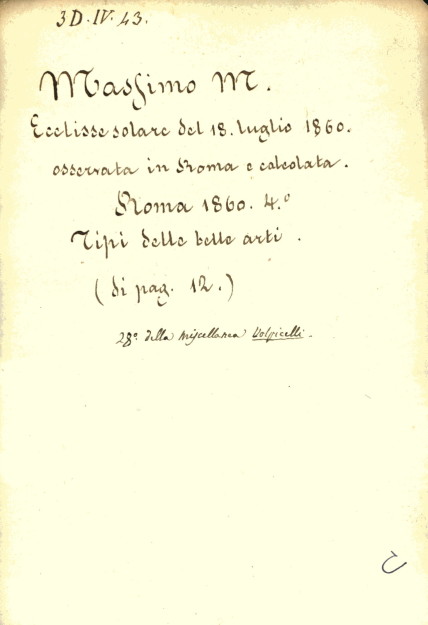 3 D. IV. 43.
Massimo M.
Ecclisse solare del 18. luglio 1860.
osservata in Roma e calcolata.
Roma 1860. 4.º
Tipi delle belle arti.
(di pag. 12.)
28º della miscellanea Volpicelli.